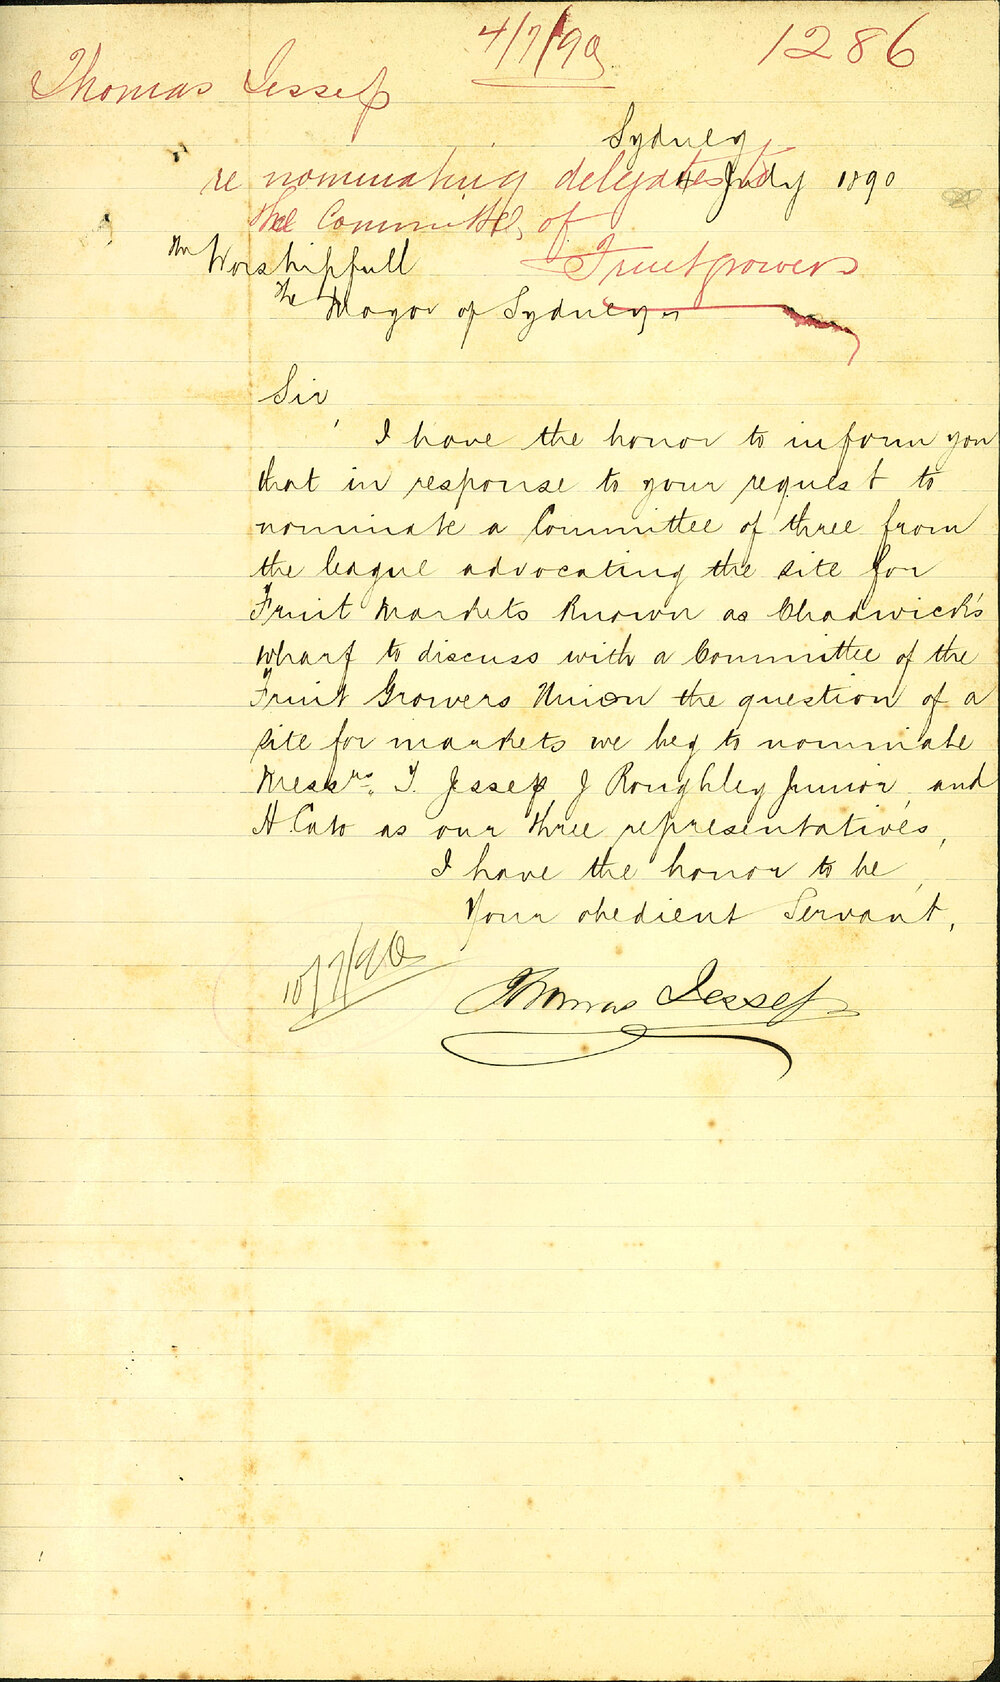 4/7/90
1286
Thomas Jessep
Sydney
re nominating delegates to
4 July 1890
the Committee of
Fruitgrowers
The Worshipfull
The Mayor of Sydney
Sir,
I have the honor to inform you
that in response to your request to
nominate a Committee of three from
the league advocating the site for
Fruit Markets Known as Chadwick's
wharf to discuss with a Committee of the
Fruit Growers Union the question of a
site for markets we beg to nominate
Messrs. T. Jessep J Roughley Junior, and
H. Cato as our three representatives,
I have the honor to be,
Your obedient Servant,
10/7/90
Thomas Jessep